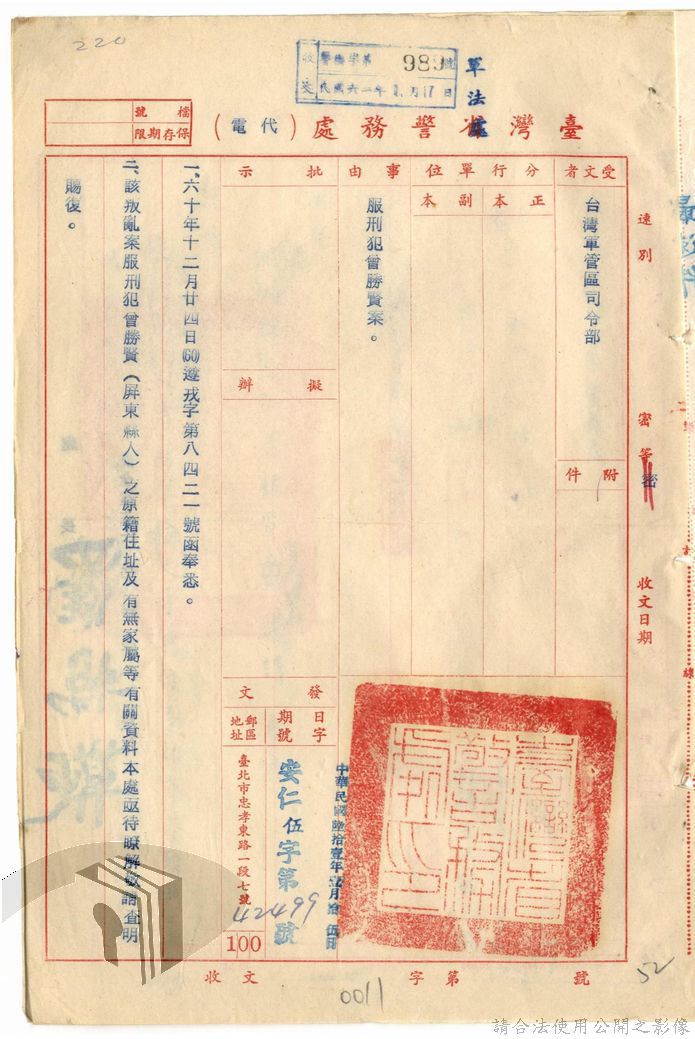 220
收文
警總字第989號
民國六一年1月17日
軍法處
臺灣省警務處（代電）
檔號
保存期限
速別
密等
密
收文日期
受文者
台灣軍管區司令部
附件
分行單位
正本
副本
事由
服刑犯曾勝賢案。
批示
擬辦
發文
日期
字號
中華民國陸拾壹年壹月拾伍日
安仁伍字第42499號
郵區地址
臺北市忠孝東路一段七號
100
一、六十年十二月廿四日(60)遵戎字第八四二一號函奉悉。
二、該叛亂案服刑犯曾勝賢（屏東縣人）之原籍住址及有無家屬等有關資料本處亟待瞭解敬請查明
賜復。
收文 字第 號
0011
52
請合法使用公開之影像